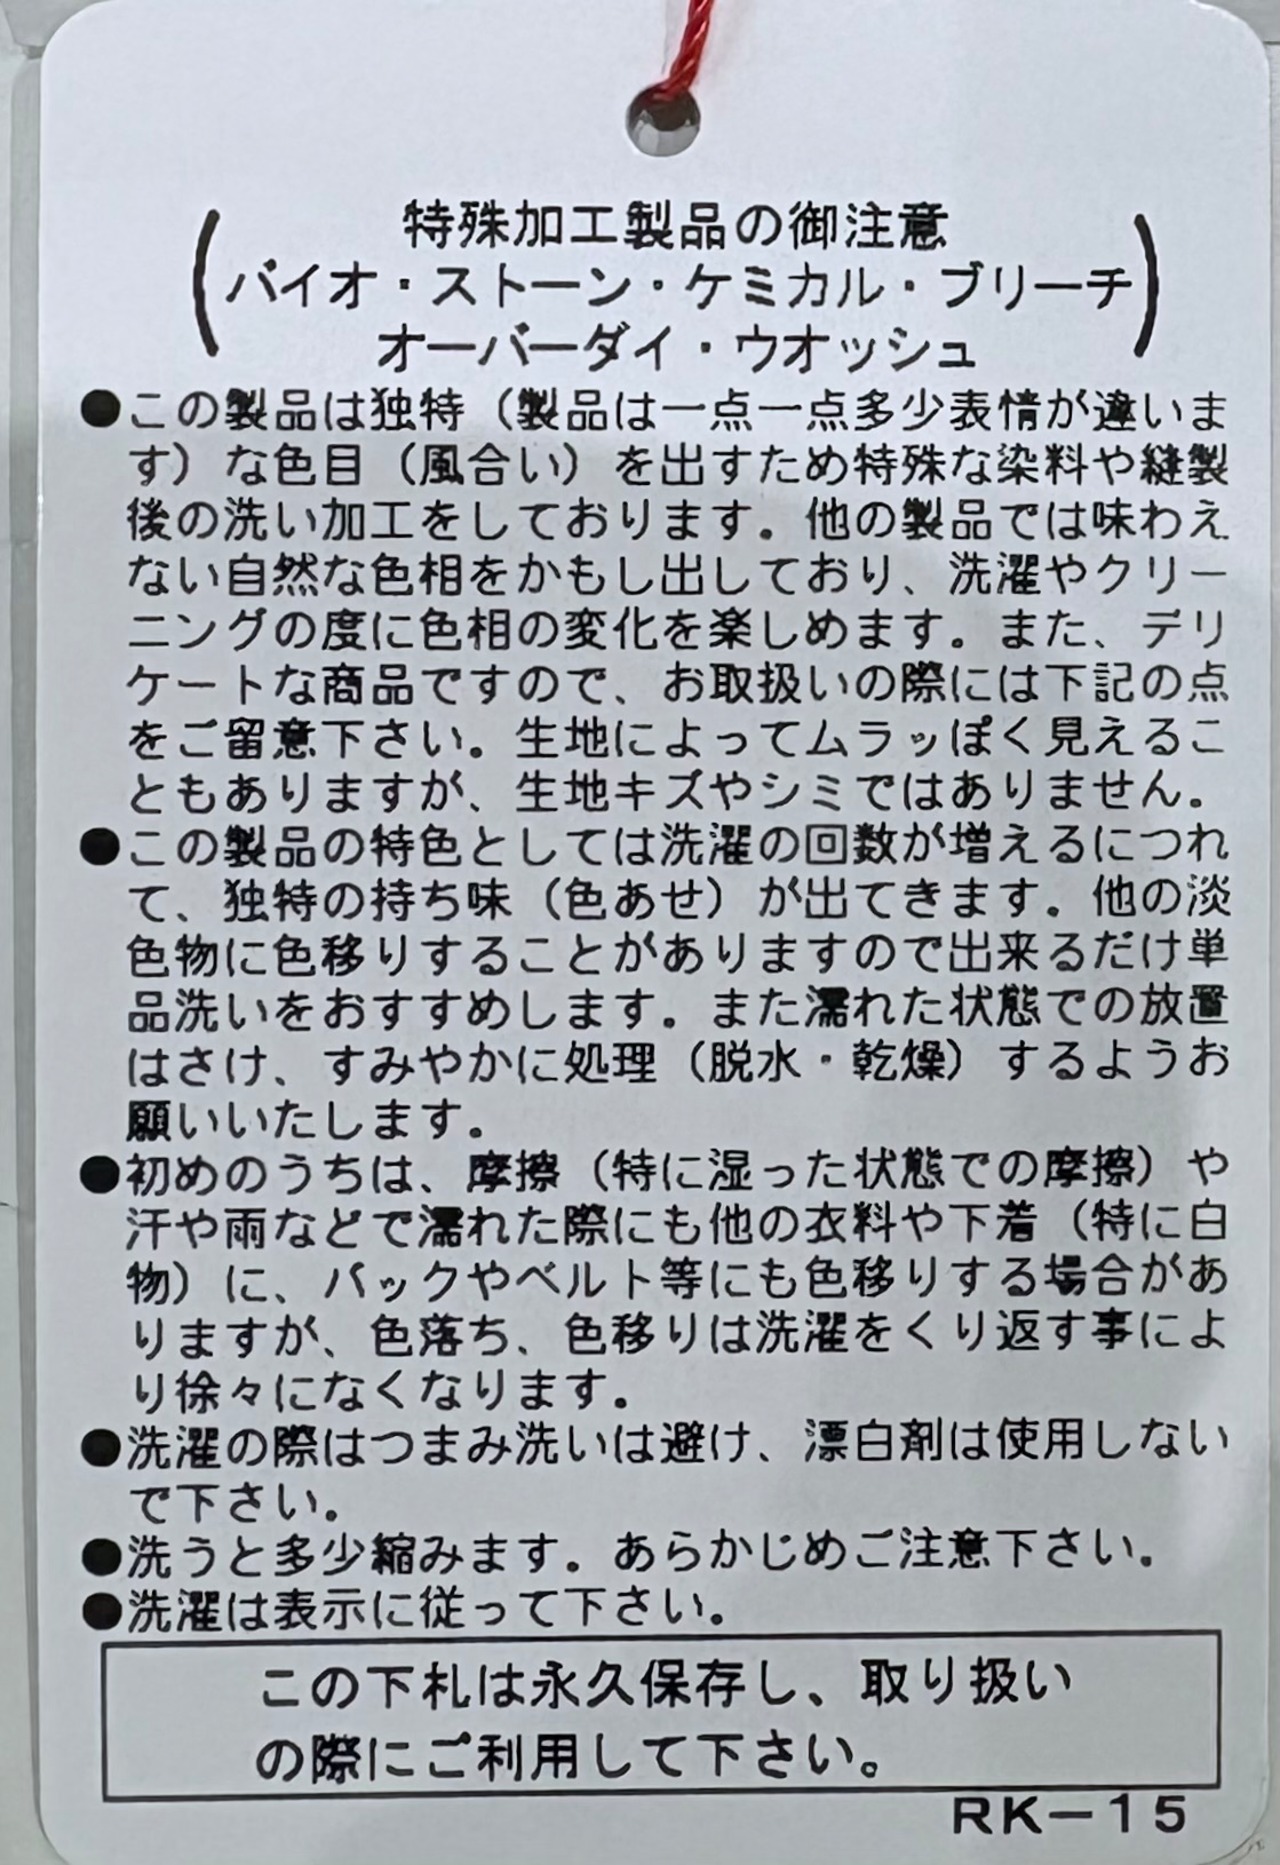 特殊加工製品の御注意
(バイオ・ストーン・ケミカル・ブリーチ
オーバーダイ・ウオッシュ)
●この製品は独特（製品は一点一点多少表情が違いま
す）な色目（風合い）を出すため特殊な染料や縫製
後の洗い加工をしております。他の製品では味わえ
ない自然な色相をかもし出しており、洗濯やクリー
ニングの度に色相の変化を楽しめます。また、デリ
ケートな商品ですので、お取扱いの際には下記の点
をご留意下さい。生地によってムラッぽく見えるこ
ともありますが、生地キズやシミではありません。
●この製品の特色としては洗濯の回数が増えるにつれ
て、独特の持ち味（色あせ）が出てきます。他の淡
色物に色移りすることがありますので出来るだけ単
品洗いをおすすめします。また濡れた状態での放置
はさけ、すみやかに処理（脱水・乾燥）するようお
願いいたします。
●初めのうちは、摩擦（特に湿った状態での摩擦）や
汗や雨などで濡れた際にも他の衣料や下着（特に白
物）に、バックやベルト等にも色移りする場合があ
りますが、色落ち、色移りは洗濯をくり返す事によ
り徐々になくなります。
●洗濯の際はつまみ洗いは避け、漂白剤は使用しない
で下さい。
●洗うと多少縮みます。あらかじめご注意下さい。
●洗濯は表示に従って下さい。
この下札は永久保存し、取り扱い
の際にご利用して下さい。
RK－15